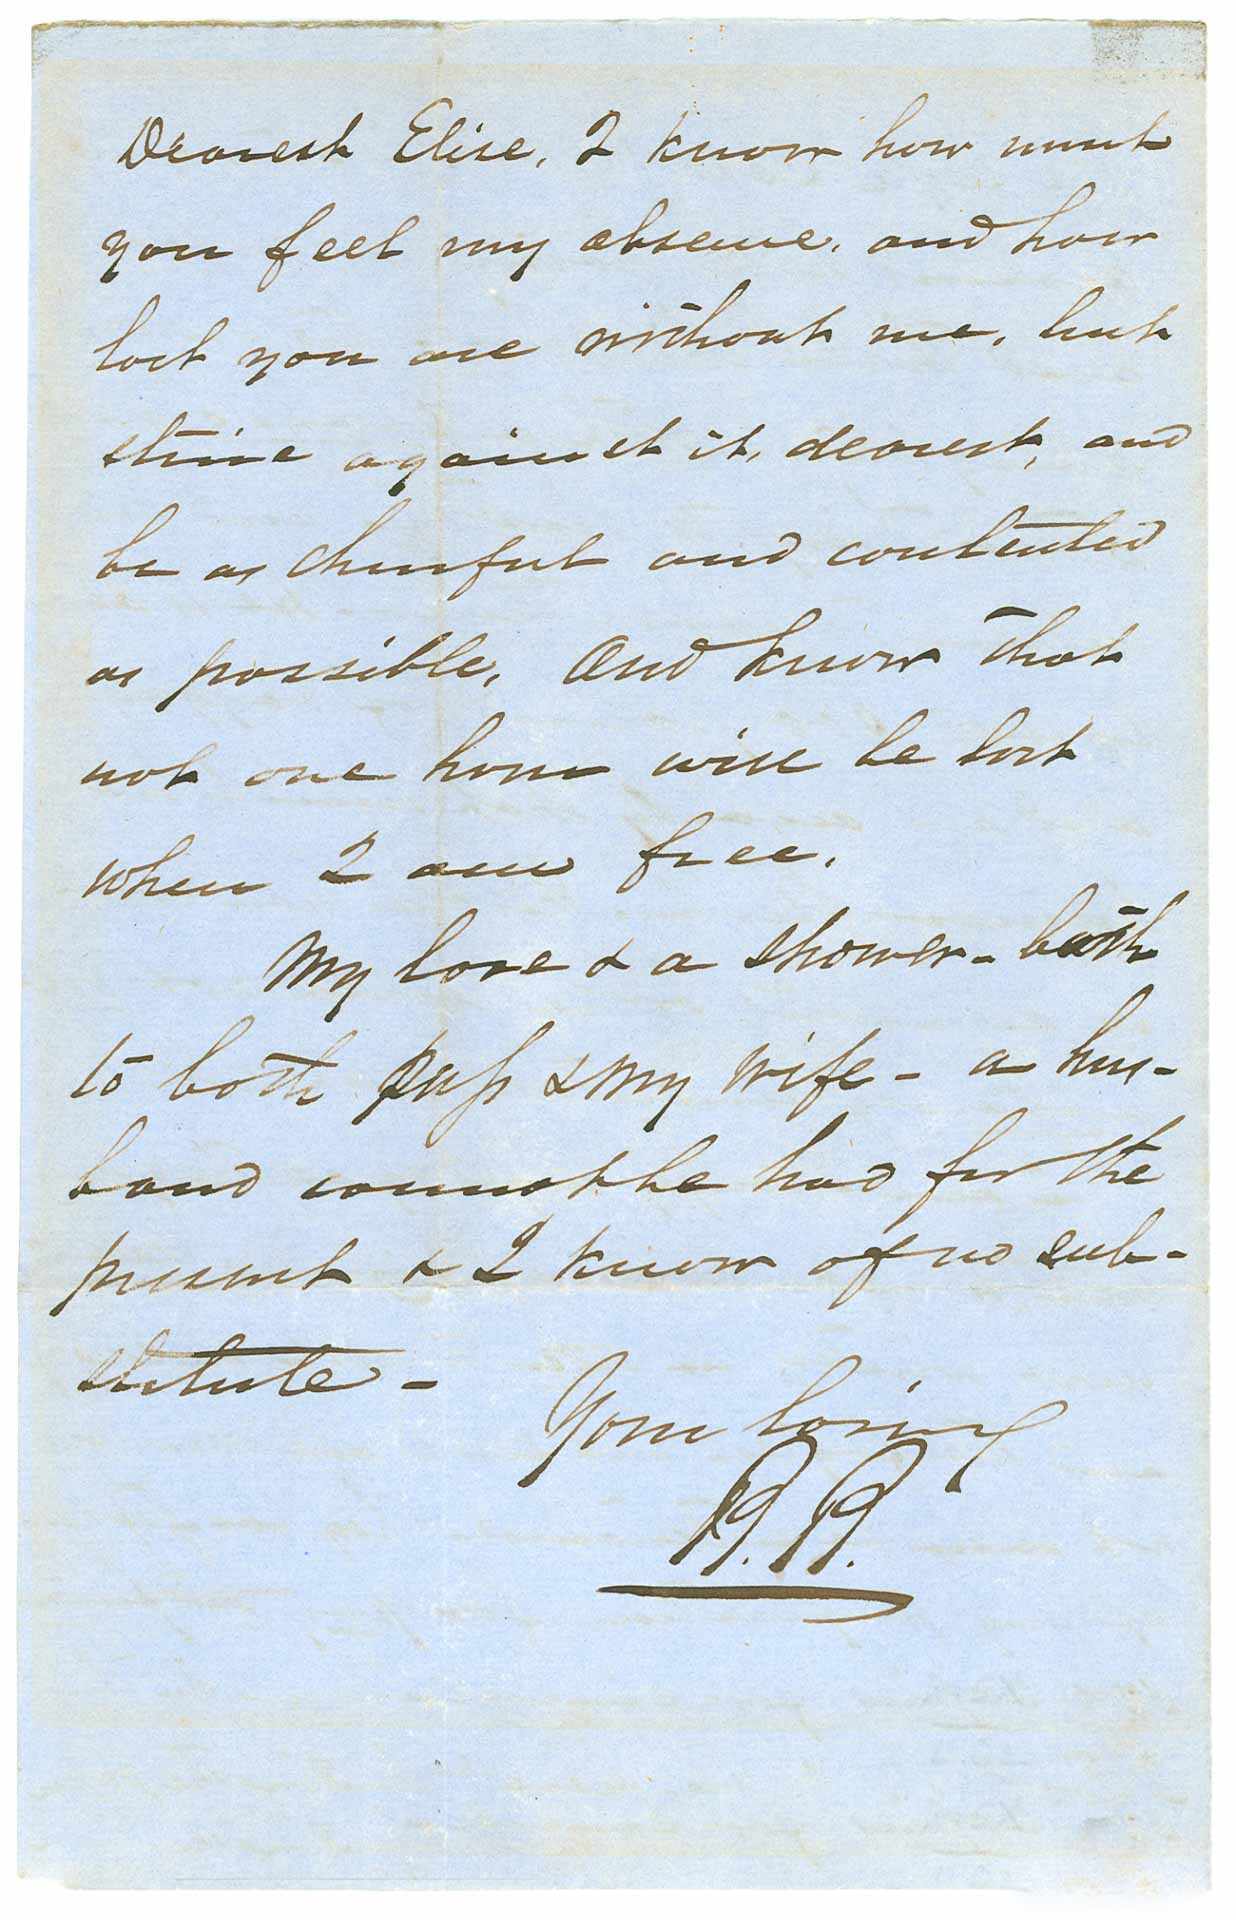 Dearest Elise, I know how much
you feel my absence, and how
lost you are without me, but
strive against it, dearest, and
be as cheerful and contented
as possible, And know that
not one hour will be lost
when I am free.
My love & a shower-bath
to both & my wife - a hus-
band cannot be had for the
present & I know of no sub-
stitute -
Your loving